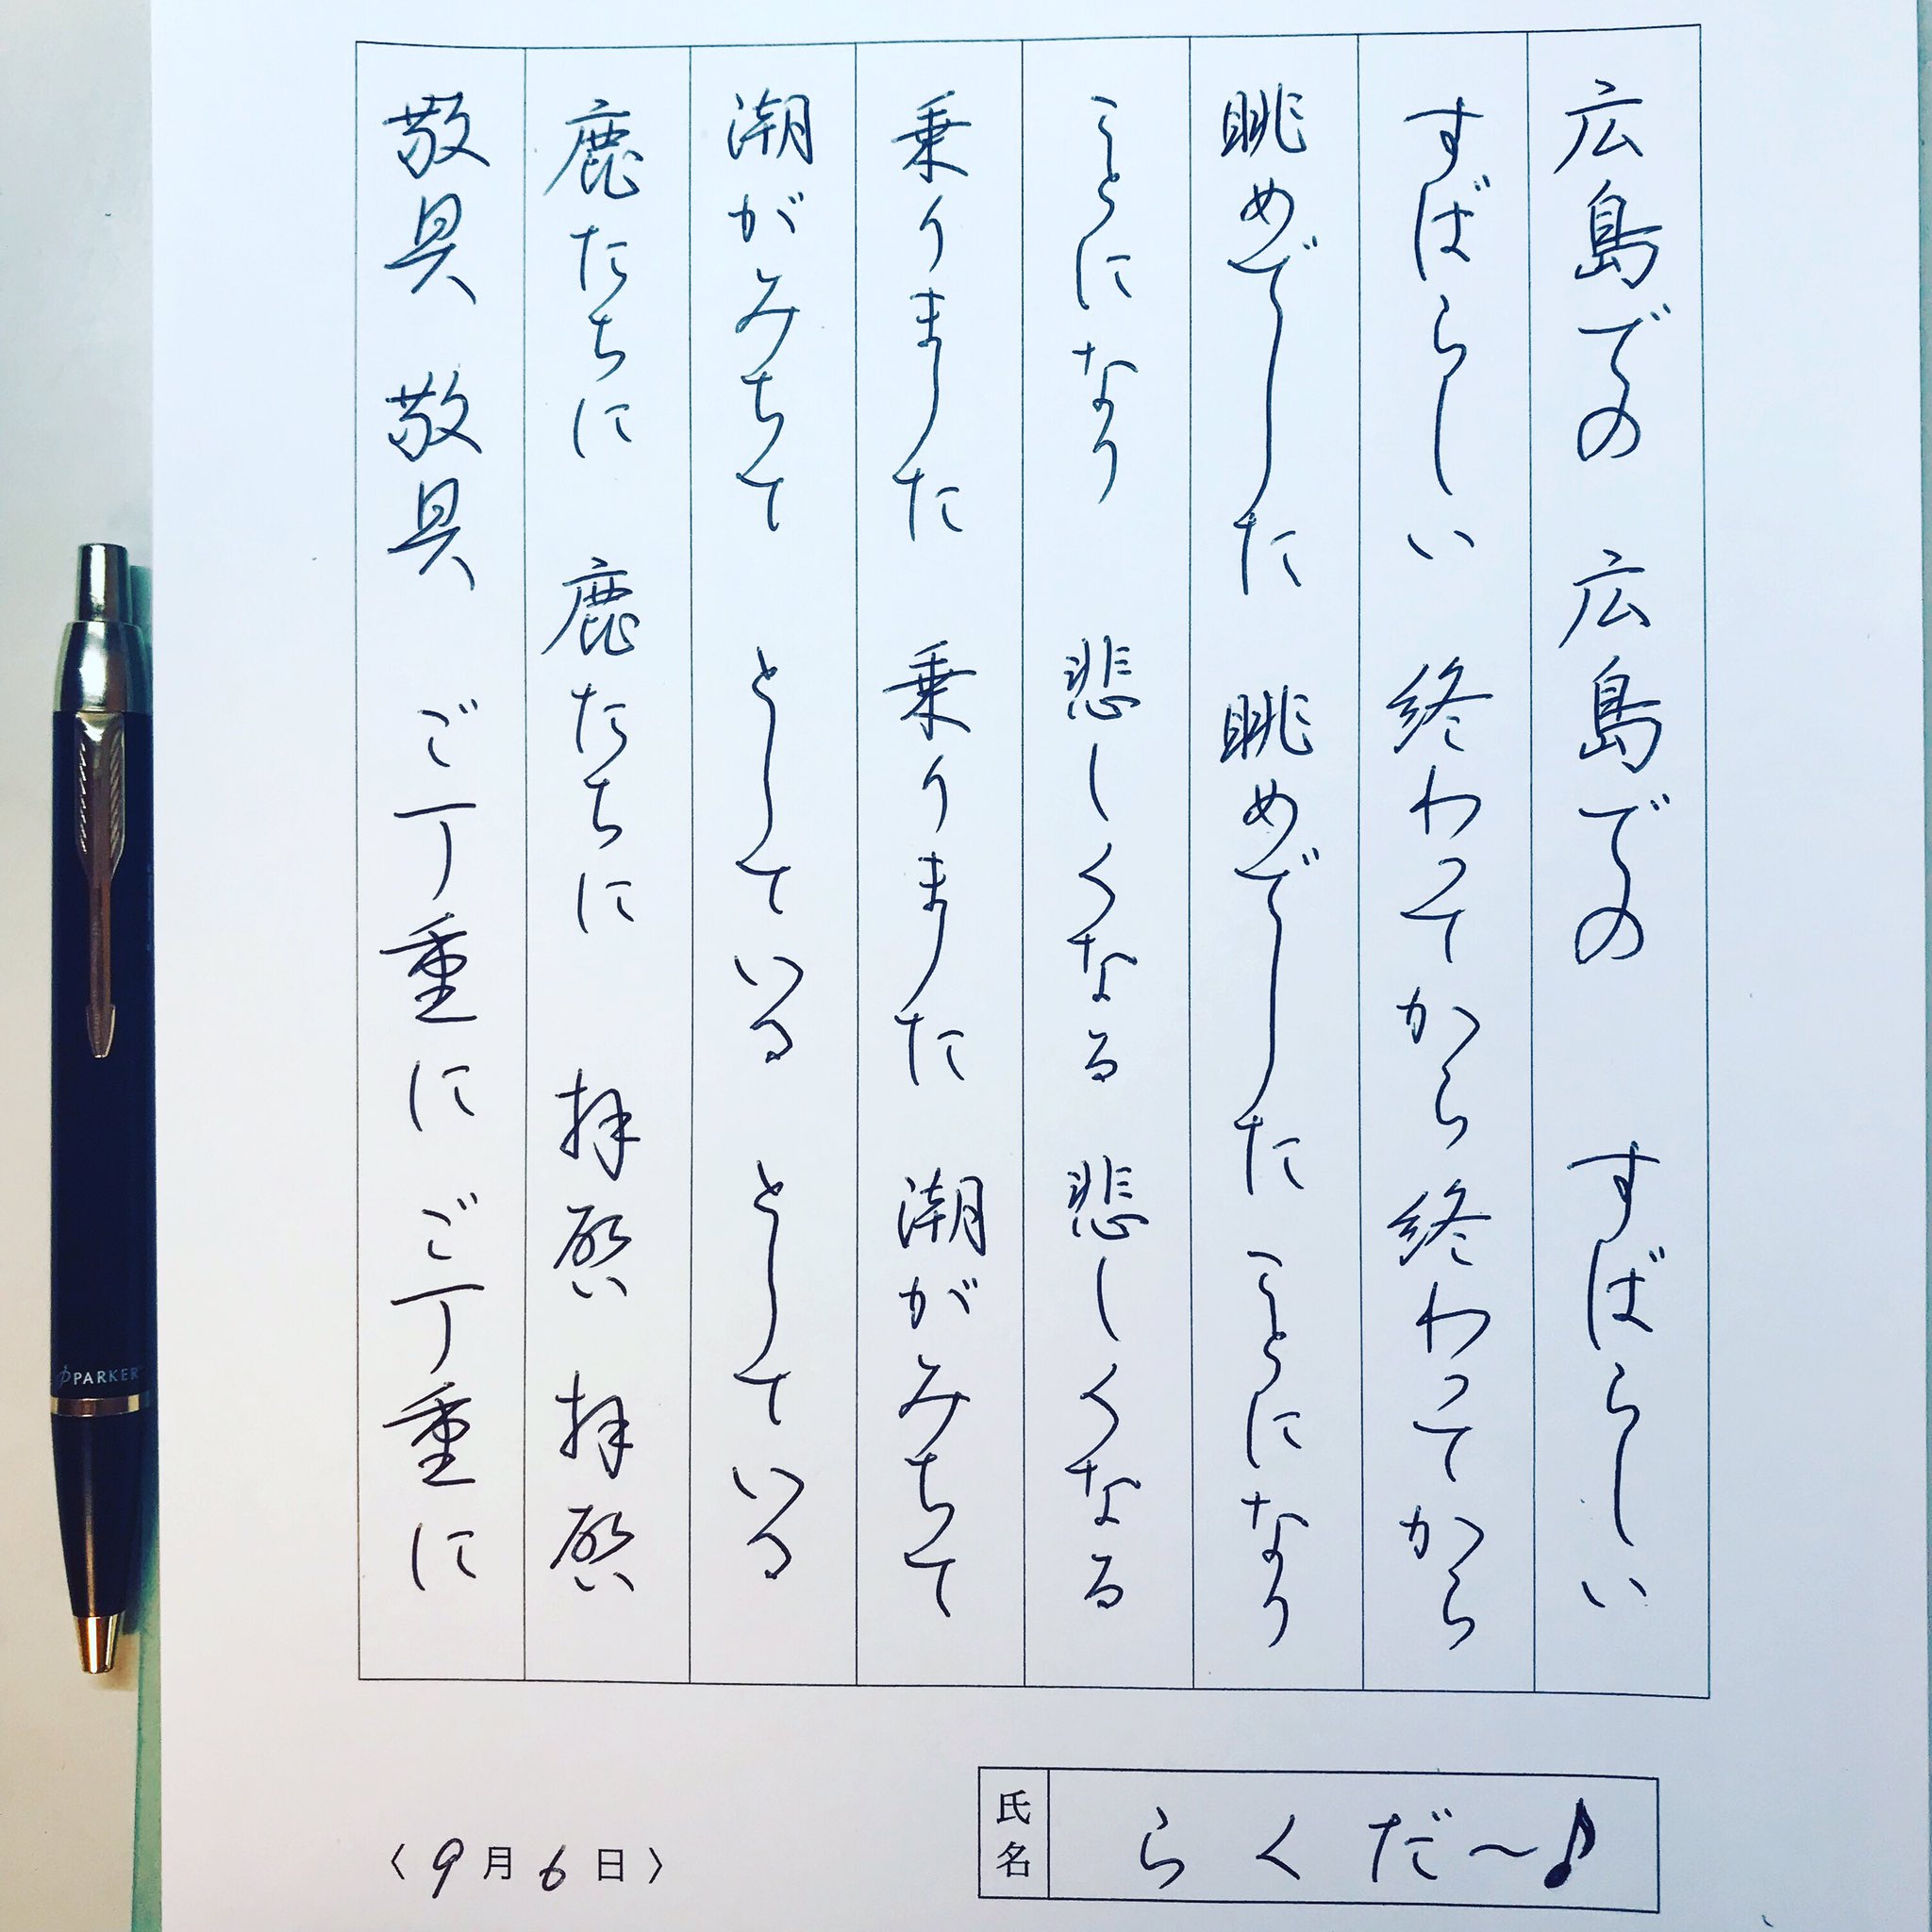 広島での 広島での すばらしい
すばらしい 終わってから 終わってから
眺めでした 眺めでした ことになり
ことになり 悲しくなる 悲しくなる
乗りました 乗りました 潮がみちて
潮がみちて としている としている
鹿たちに 鹿たちに 拝啓 拝啓
敬具 敬具 ご丁重に ご丁重に
氏名 らくだ～♪
〈9月6日〉
PARKER